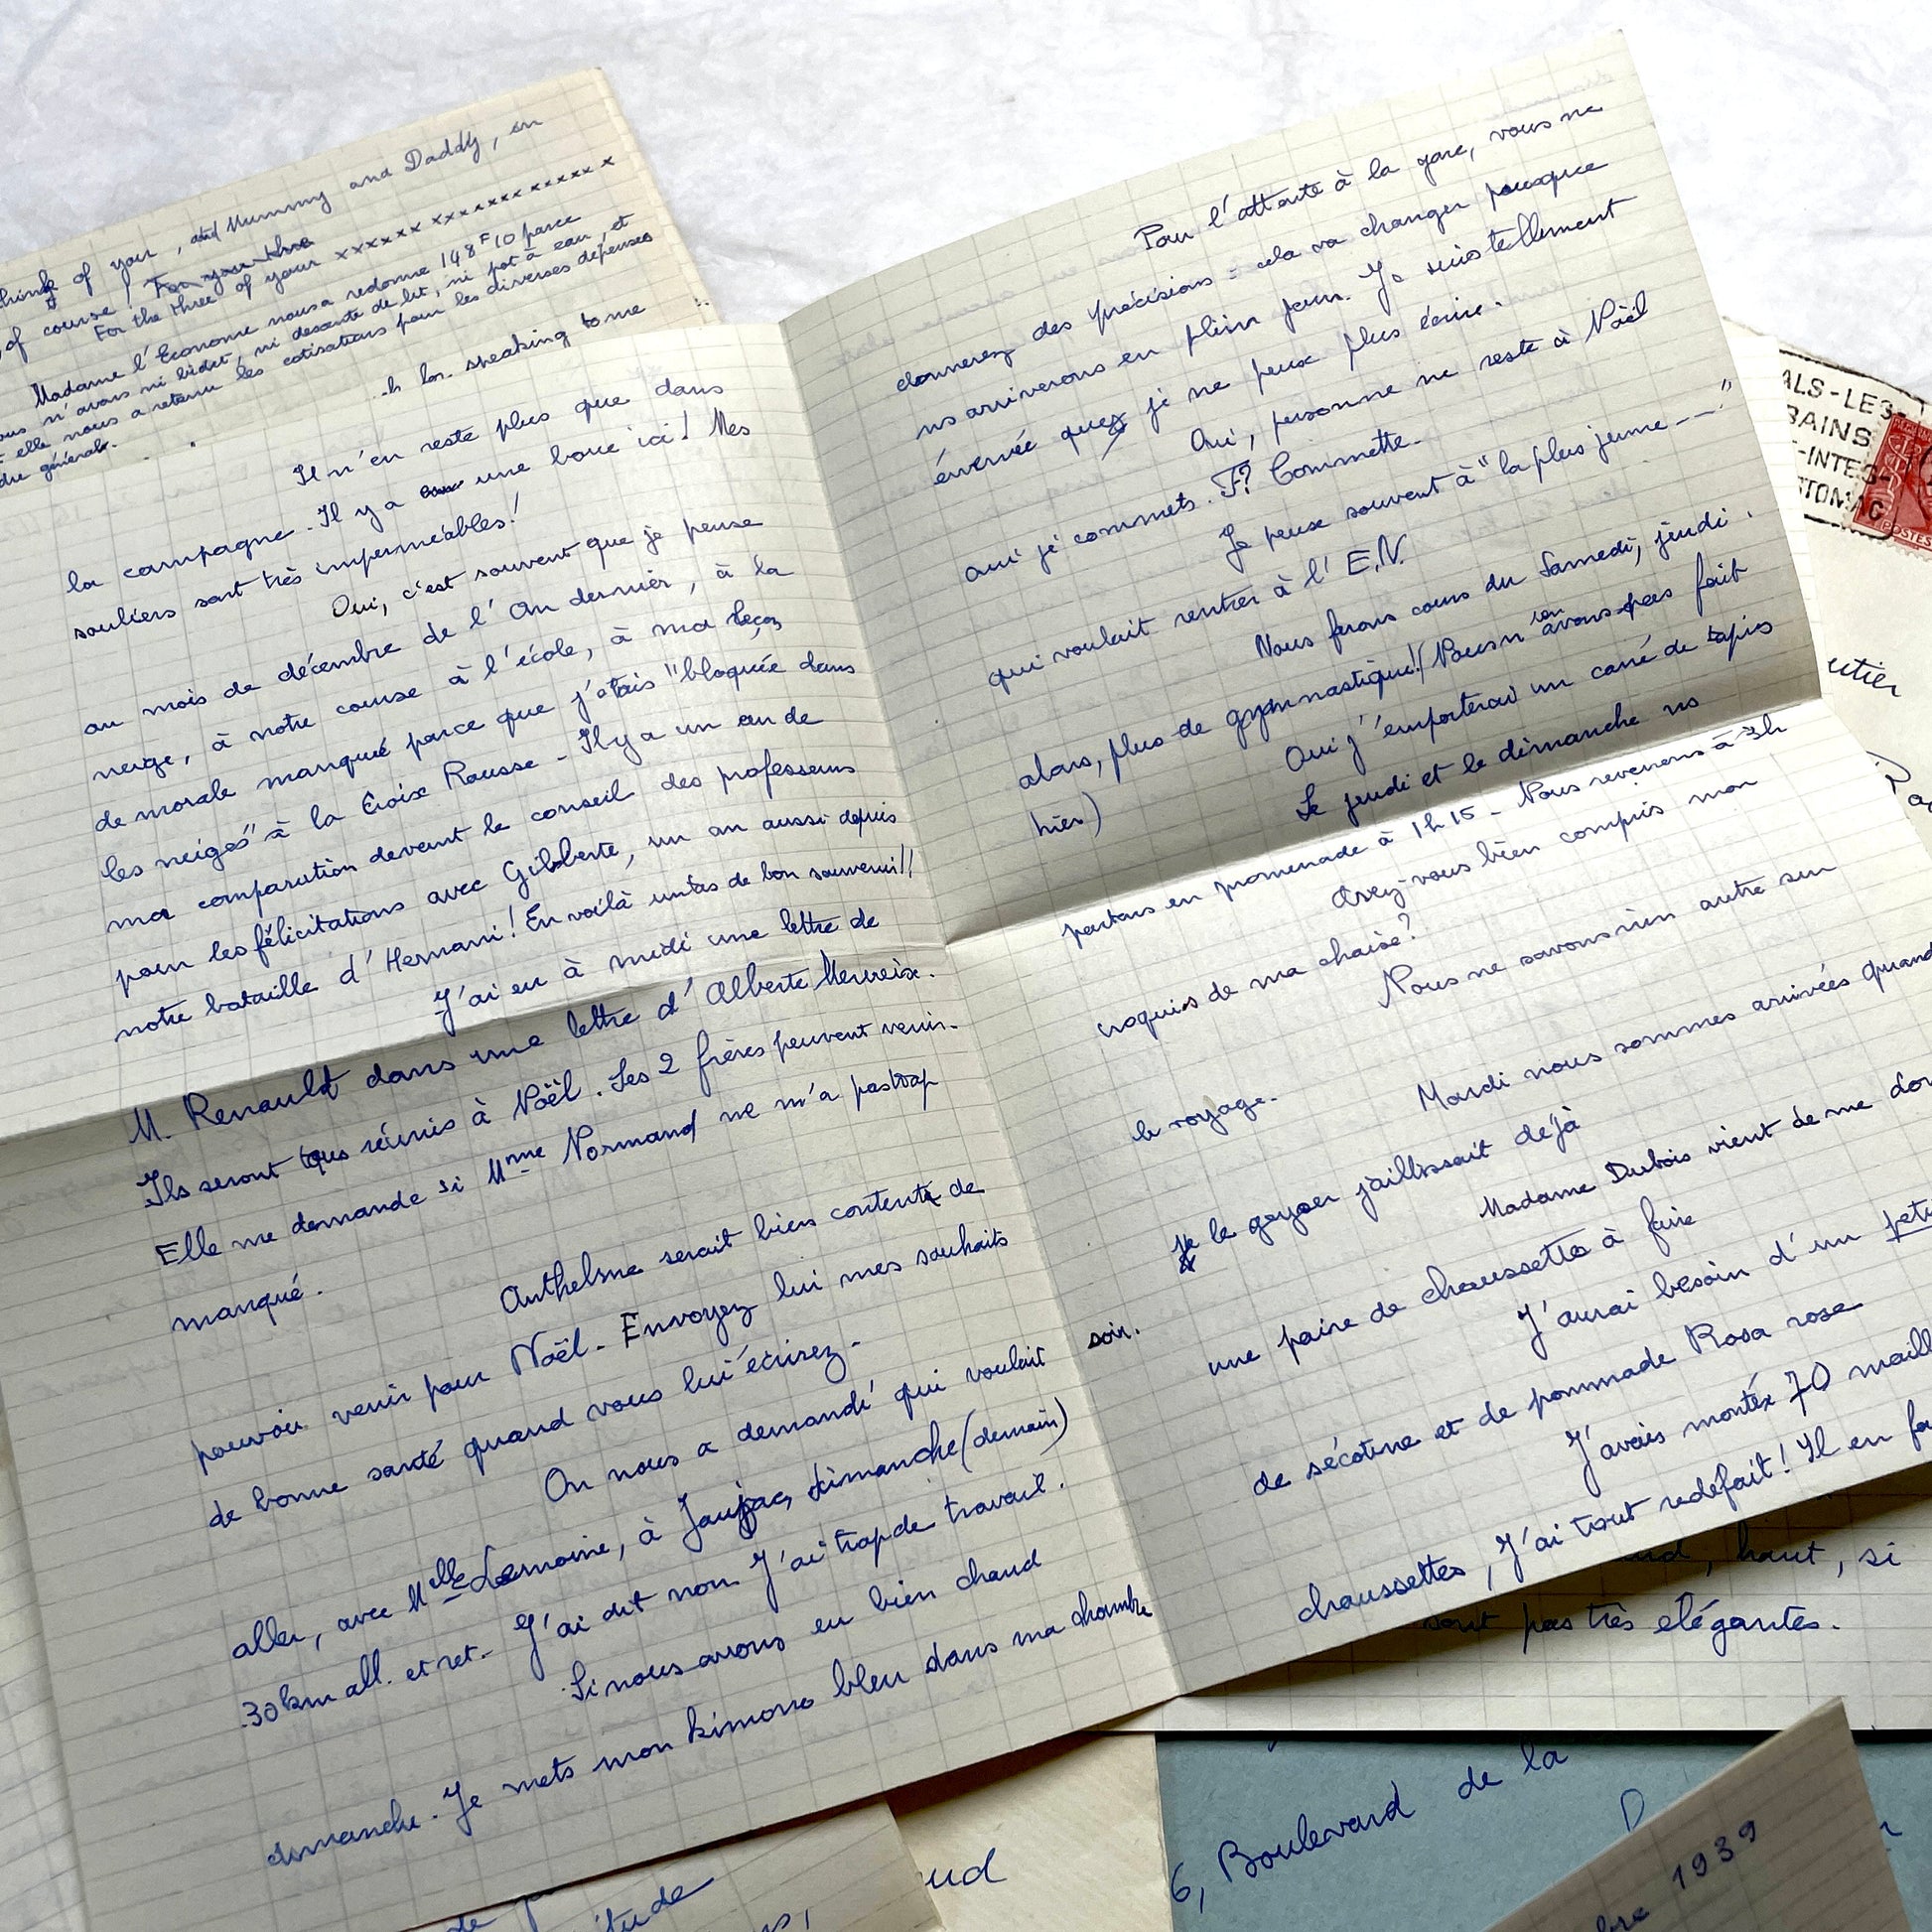 think of you, and Mummy and Daddy, on
of course! For you three
For the three of your xxxxxx xxxxxxxx xxxxxx x
Madame l'Économe nous a redonné 148F10 parce
nous n'avons ni bidet, ni descente de lit, ni pot à eau, et
elle nous a retenu les cotisations pour les diverses dépenses
générale.
speaking to me
Il n'en reste plus que dans
la campagne. Il y a une boue ici! Mes
souliers sont très imperméables!
Oui, c'est souvent que je pense
au mois de décembre de l'An dernier, à la
neige, à notre course à l'école, à ma leçon
de morale manquée parce que j'étais "bloquée dans
les neiges" à la Croix Rousse - Il y a un an de
ma comparution devant le conseil des professeurs
pour les félicitations avec Gilberte, un an aussi depuis
notre bataille d'Hernani! En voilà un tas de bon souvenir!!
J'ai eu à midi une lettre de
M. Renault dans une lettre d'Alberte Merveix.
Ils seront tous réunis à Noël. Les 2 frères peuvent venir.
Elle me demande si Mme Normand ne m'a pas trop
manqué.
Anthelme serait bien content de
pouvoir venir pour Noël. Envoyez lui mes souhaits
de bonne santé quand vous lui écrirez.
On nous a demandé qui voulait
aller, avec Mlle Lemoine, à Jaujac, dimanche (demain)
30km all. et ret. J'ai dit non J'ai trop de travail.
Si nous avons eu bien chaud
dimanche. Je mets mon kimono bleu dans ma chambre
soir.
Pour l'attente à la gare, vous me
donnerez des précisions = cela va changer puisque
ns arriverons en plein jour. Je suis tellement
énervée que je ne peux plus écrire.
Oui, personne ne reste à Noël
oui je commets. F? Commette.
Je pense souvent à "la plus jeune ---"
qui voulait rentrer à l'E.N.
Nous ferons cours du Samedi, jeudi.
alors, plus de gymnastique! (Nous n'en avons pas fait
hier)
Oui j'emporterai un carré de tapis
Le jeudi et le dimanche ns
partons en promenade à 1h15 - Nous revenons à 3h
Avez-vous bien compris mon
croquis de ma chaise?
Nous ne savons rien autre sur
le voyage.
Mardi nous sommes arrivées quand
le geyser jaillissait déjà
Madame Dubois vient de me
une paire de chaussettes à faire
J'aurai besoin d'un
de sécotine et de pommade Rosa rose
J'avais monté 70
chaussettes, J'ai tout redéfait! Il en
haut, si
sont pas très élégantes.
ALS-LES-
BAINS
-INTES-
STOMAC
POSTES
utier
6, Boulevard de la
1939
ud